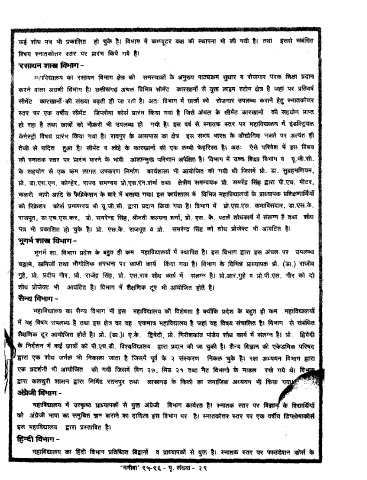 कई शोध पत्र भी प्रकाशित हो चुके है। विभाग में कम्प्यूटर कक्ष की स्थापना भी की गयी है। तथा इससे संबंधित
विषय स्नातकोत्तर स्तर पर प्रारंभ किये गये है।
रसायन शास्त्र विभाग -
महाविद्यालय का रसायन विभाग क्षेत्र की समस्याओं के अनुरूप पाठ्यक्रम सुधार व रोजगार परक शिक्षा प्रदान
करने वाला अग्रणी विभाग है। छत्तीसगढ़ अंचल विभिन्न सीमेंट कारखानों से युक्त लाइम स्टोन क्षेत्र है जहां पर प्रतिवर्ष
सीमेंट कारखानों की संख्या बढ़ती ही जा रही है। अतः विभाग में छात्रों को रोजगार उपलब्ध कराने हेतु स्नातकोत्तर
स्तर का एक वर्षीय सीमेंट डिप्लोमा कोर्स प्रारंभ किया गया है जिसे अंचल के सीमेंट कारखानों की सहयोग प्राप्त
हो रहा है तथा छात्रों को नौकरी भी उपलब्ध हो गयी है। इस वर्ष से स्नातक स्तर पर महाविद्यालय में इंडस्ट्रियल
केमेस्ट्री विषय प्रारंभ किया गया है। रायपुर के आसपास का क्षेत्र इस समय भारत के औद्योगिक नक्शे पर अत्यंत ही
तेजी से उदित हुआ है। सीमेंट व लोहे के कारखानों की एक लम्बी फेहरिस्त है। अतः ऐसे परिवेश में इस विषय
को स्नातक स्तर पर प्रारंभ करने के भावी आशानुरूप परिणाम अपेक्षित है। विभाग में उच्च शिक्षा विभाग व यू.जी.सी.
के सहयोग से एक कम लागत उपकरण निर्माण कार्यशाला भी आयोजित की गयी थी जिसमें प्रो. डा. सुब्रहमणियम,
प्रो. डा.एस.एन. कोन्हेर, राज्य समन्वय प्रो.एस.एन.शर्मा तथा क्षेत्रीय समन्वयक प्रो. समरेंद्र सिंह द्वारा पी.एच. मीटर,
कालरी आदि के फेब्रिकेशन के बारे में बताया गया। इस कार्यशाला में विभिन्न महाविद्यालयों के प्राध्यापक प्रशिक्षणार्थियों
को रिफ्रेशर कोर्स प्रमाणपत्र भी यू.जी.सी. द्वारा प्रदान किया गया है। विभाग में प्रो.एस.एस. डा.एस.के.
राजपूत, डा.एच.एस.कर, प्रो. समरेन्द्र सिंह, श्रीमती कल्पना शर्मा, प्रो. एल. के. शोधकार्य में संलग्न है तथा शोध
पत्र भी प्रकाशित हो चुके है। प्रो. एस.के. राजपूत व प्रो. समरेन्द्र सिंह को शोध प्रोजेक्ट भी आवंटित है।
भूगर्भ शास्त्र विभाग -
भूगर्भ शा. विभाग प्रदेश के बहुत ही कम महाविद्यालयों में स्थापित है। इस विभाग द्वारा इस अंचल पर उपलब्ध
चट्टानें, खनिजों तथा भौगोलिक संरचना पर काफी कार्य किया गया है। विभाग के विभिन्न प्राध्यापक प्रो. (डा.) राजीव
गुहे, प्रो. प्रदीप गौर, प्रो. राजेंद्र सिंह, प्रो. एल.राव शोध कार्य में संलग्न है। प्रो.आर.गुहे व प्रो.पी.एल. गौर को दो
शोध प्रोजेक्ट भी आवंटित है। विभाग में शैक्षणिक टूर भी आयोजित होते है।
सैन्य विभाग -
महाविद्यालय का सैन्य विभाग भी इस महाविद्यालय की विशेषता है क्योंकि प्रदेश के बहुत ही कम महाविद्यालयों
में यह विषय उपलब्ध है तथा इस क्षेत्र का यह एकमात्र महाविद्यालय है जहां यह विषय संचालित है। विभाग से संबंधित
शैक्षणिक टूर आयोजित होते है। प्रो. (डा.) ए.के. द्विवेदी, प्रो. गिरीशकांत पांडेय शोध कार्य में संलग्न है। प्रो. द्विवेदी
के निर्देशन में कई छात्रों को पी.एच.डी. विश्वविद्यालय द्वारा प्रदान की जा चुकी है। सैन्य विज्ञान की एकेडमिक परिषद
द्वारा एक शोध जर्नल भी निकाला जाता है जिसमें पूर्व के २ संस्करण निकल चुके है। रक्षा अध्ययन विभाग द्वारा
एक प्रदर्शनी भी आयोजित की गयी जिसमें मिग २७, मिग २९ तथा नैट विमानों के माडल रखे गये थे। विभाग
द्वारा कलचुरी शासन द्वारा निर्मित रतनपुर तथा के किलो का सामरिक अध्ययन भी किया गया।
अंग्रेजी विभाग -
महाविद्यालय में उत्कृष्ठ प्राध्यापकों से युक्त अंग्रेजी विभाग कार्यरत है। स्नातक स्तर पर विज्ञान के विद्यार्थियों
को अंग्रेजी भाषा का समुचित ज्ञान कराने का दायित्व इस विभाग पर है। स्नातकोत्तर स्तर पर एक वर्षीय डिप्लोमाकोर्स
इस महाविद्यालय द्वारा प्रस्तावित है।
हिन्दी विभाग -
महाविद्यालय का हिंदी विभाग प्रतिष्ठित विद्वानों व प्राध्यापकों से युक्त है। स्नातक स्तर पर फाउंडेशन कोर्स के
"मनीषा" ९५-९६ - पृ. संख्या - २९